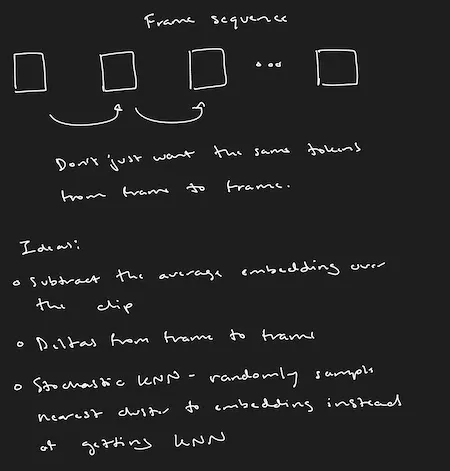 Frame sequence
...
Don't just want the same tokens
from frame to frame.
Ideas:
• Subtract the average embedding over
the clip
• Deltas from frame to frame
• Stochastic KNN - randomly sample
nearest cluster to embedding instead
of getting KNN